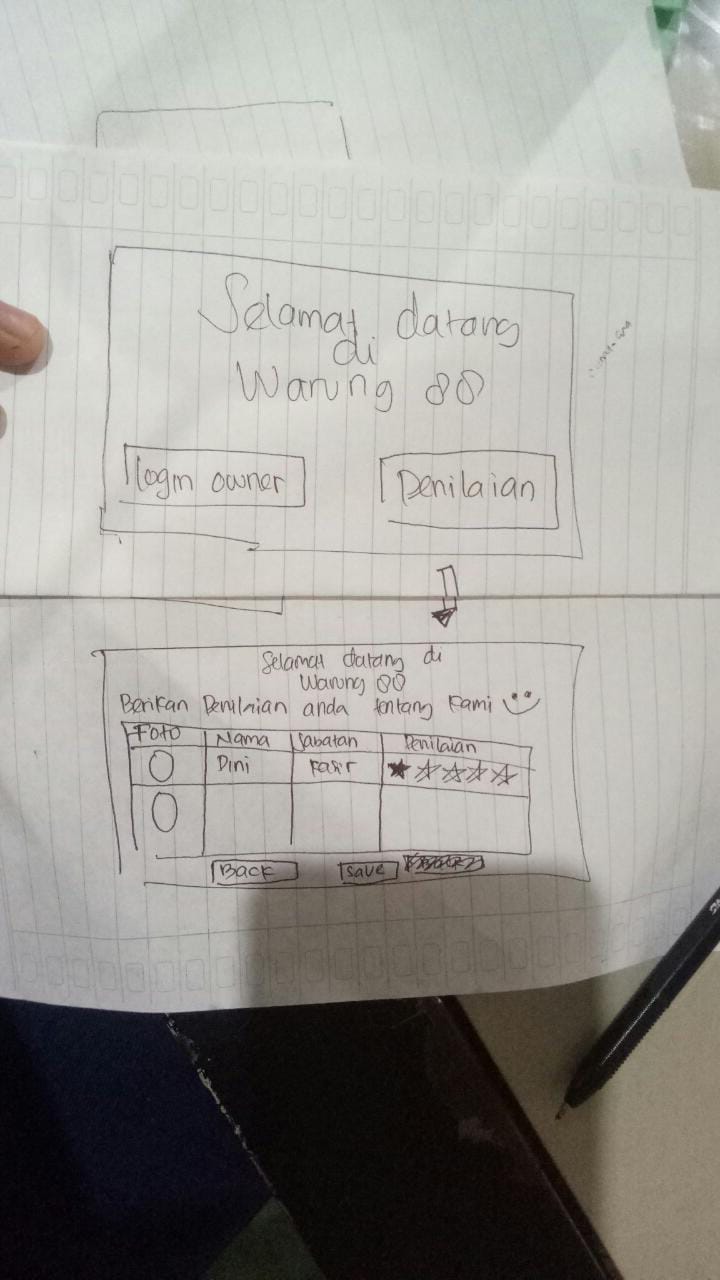 Selamat datang
di
Warung 88
login owner
Penilaian
Selamat datang di
Warung 88
Berikan Penilaian anda tentang kami
Foto Nama Jabatan Penilaian
Dini Kasir
Back Save